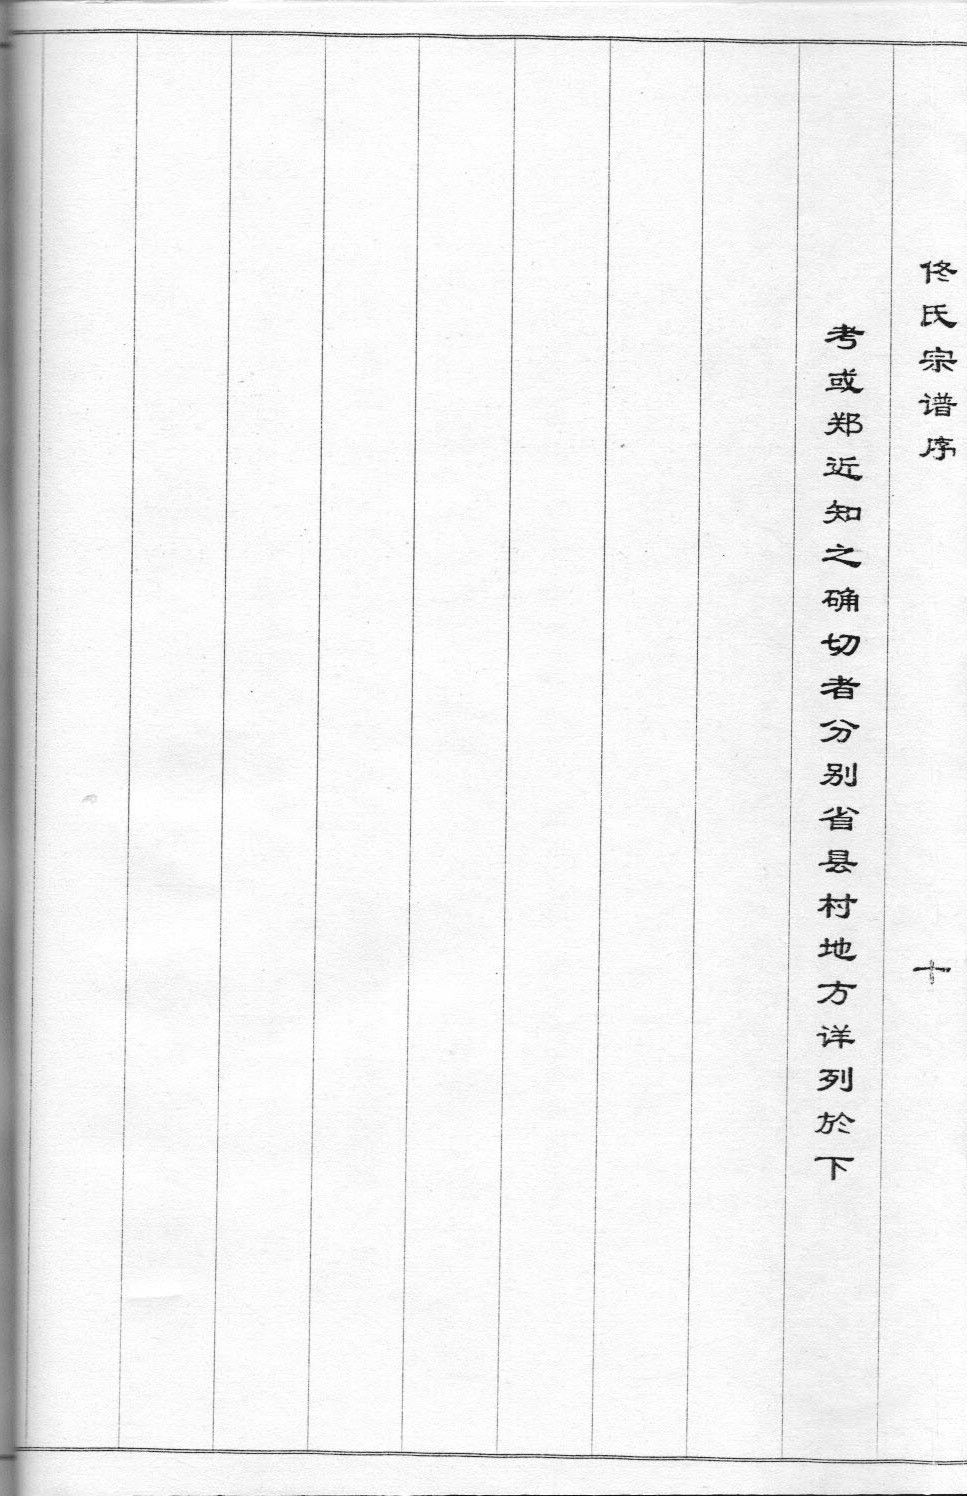 佟氏宗谱序
十
考或郑近知之确切者分别省县村地方详列於下